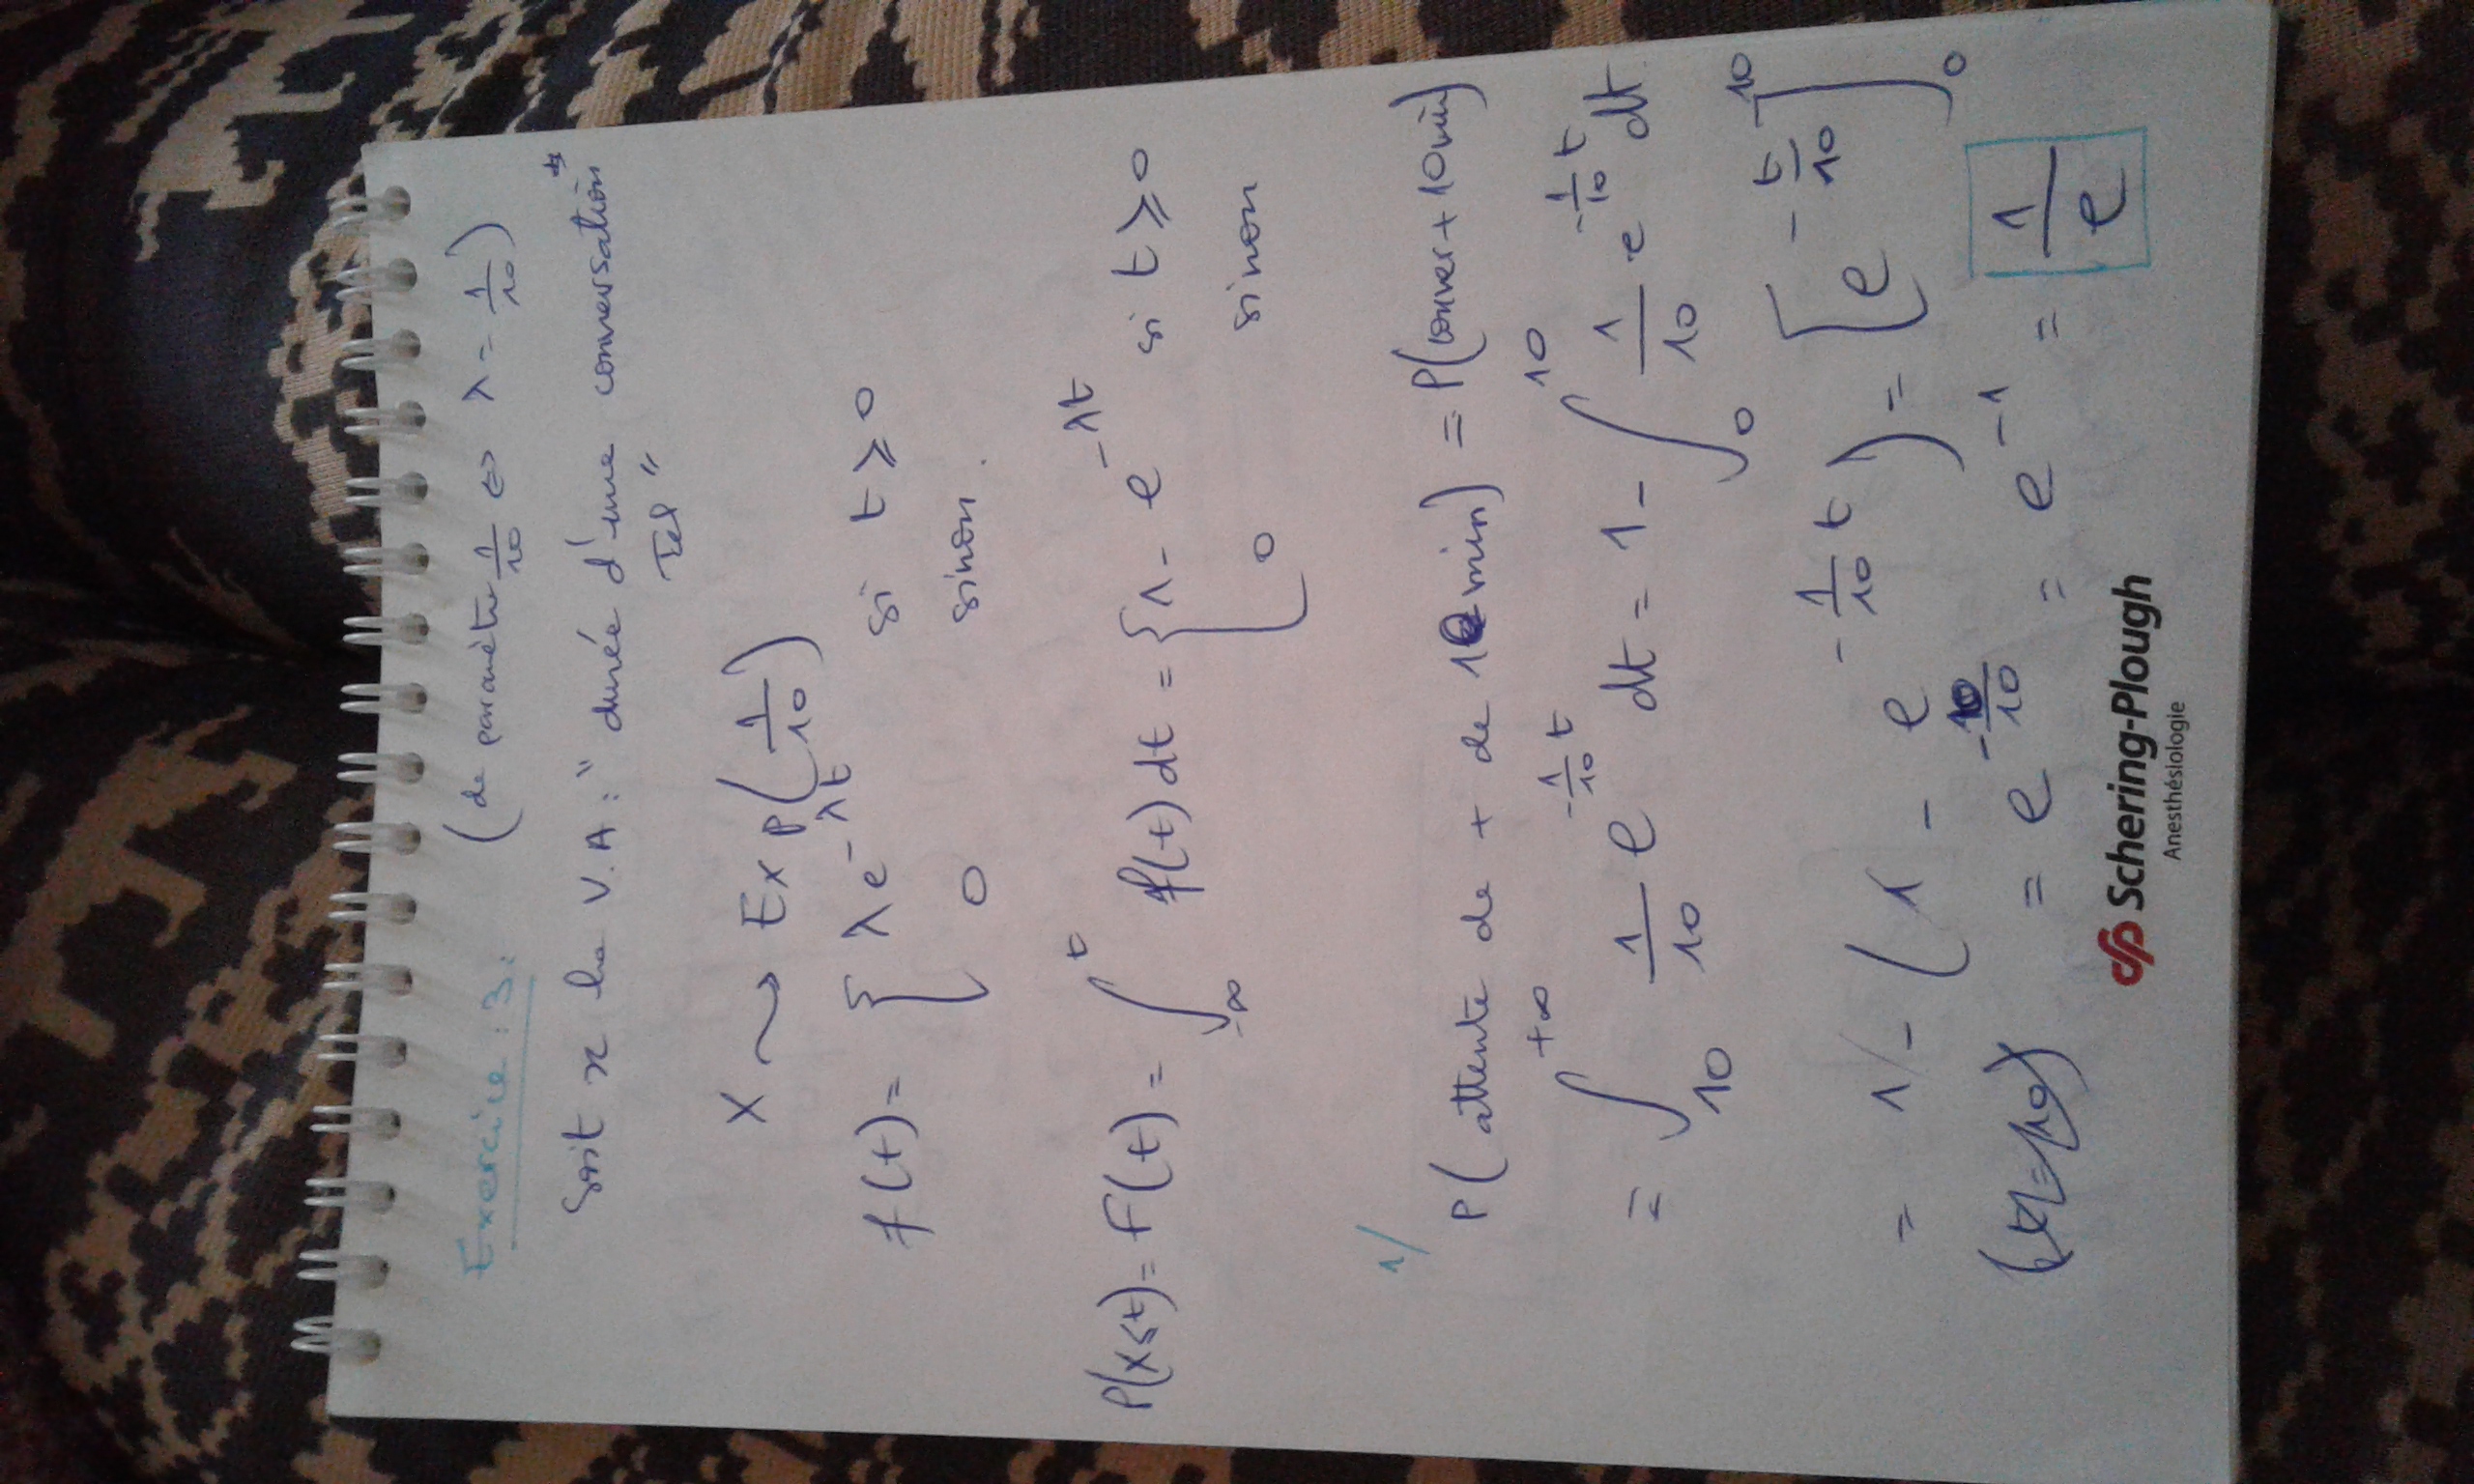 Exercice : 3 : (de paramètre 1/10 ⇔ λ = 1/10)
Soit x la V.A : " durée d'une conversation
Tel "
X ⤳ Exp(1/10)
f(t) = { λe^{-λt} si t ≥ 0
0 sinon.
P(X≤t) = F(t) = ∫_{-∞}^{t} f(t) dt = { 1 - e^{-λt} si t ≥ 0
0 sinon
1/
P( attente de + de 10 min) = P(conver + 10 min)
= ∫_{10}^{+∞} 1/10 e^{-1/10 t} dt = 1 - ∫_{0}^{10} 1/10 e^{-1/10 t} dt
= 1 - (1 - e^{-1/10 t}) = [e^{-t/10}]_{0}^{10}
= e^{-10/10} = e^{-1} = 1/e
Schering-Plough
Anesthésiologie